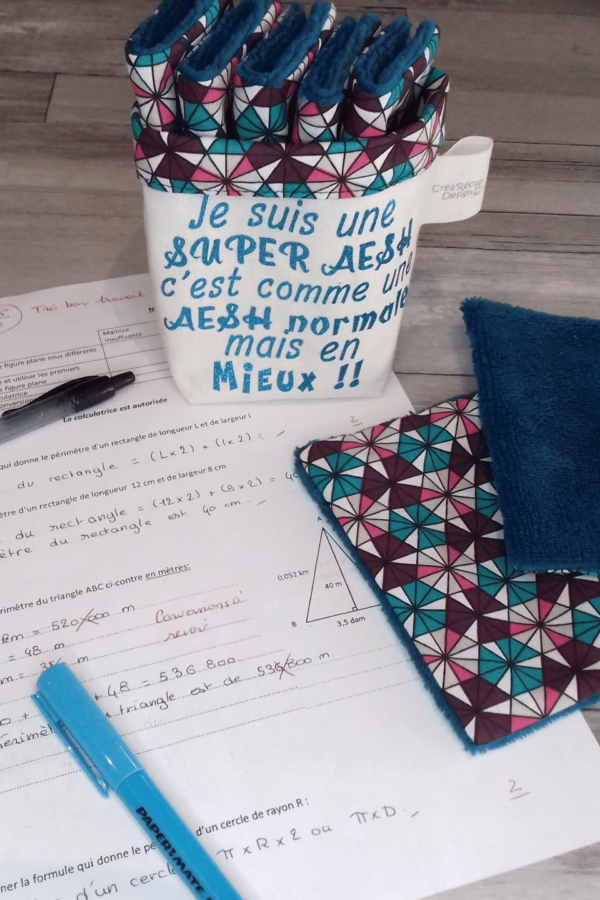 Créa'Récup
Design
Je suis une
SUPER AESH
c'est comme une
AESH normale
mais en
Mieux !!
Très bon travail
Maitrise
insuffisante
figure plane sous différents
et utiliser les premiers
figure plane
La calculatrice est autorisée
qui donne le périmètre d'un rectangle de longueur L et de largeur l
du rectangle = (L x 2) + (l x 2) :
2
d'un rectangle de longueur 12 cm et de largeur 8 cm
du rectangle = (12 x 2) + (8 x 2) = 40
du rectangle est 40 cm.
périmètre du triangle ABC ci-contre en mètres:
= 520 000 m
= 48 m
m
Conversions à
revoir
+ 48 = 536 800
triangle est de 536 800 m
A
0,052 km
40 m
B
3,5 dam
PAPER:MATE
2
d'un cercle de rayon R :
ner la formule qui donne le pé
π x R x 2 ou π x D.
d'un cercle